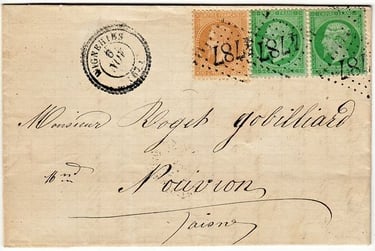 WIGNERIES
6
NOV
(57)
4787
4787
4787
Monsieur Roget Gobilliard
Mnd
Nouvion
(aisne)